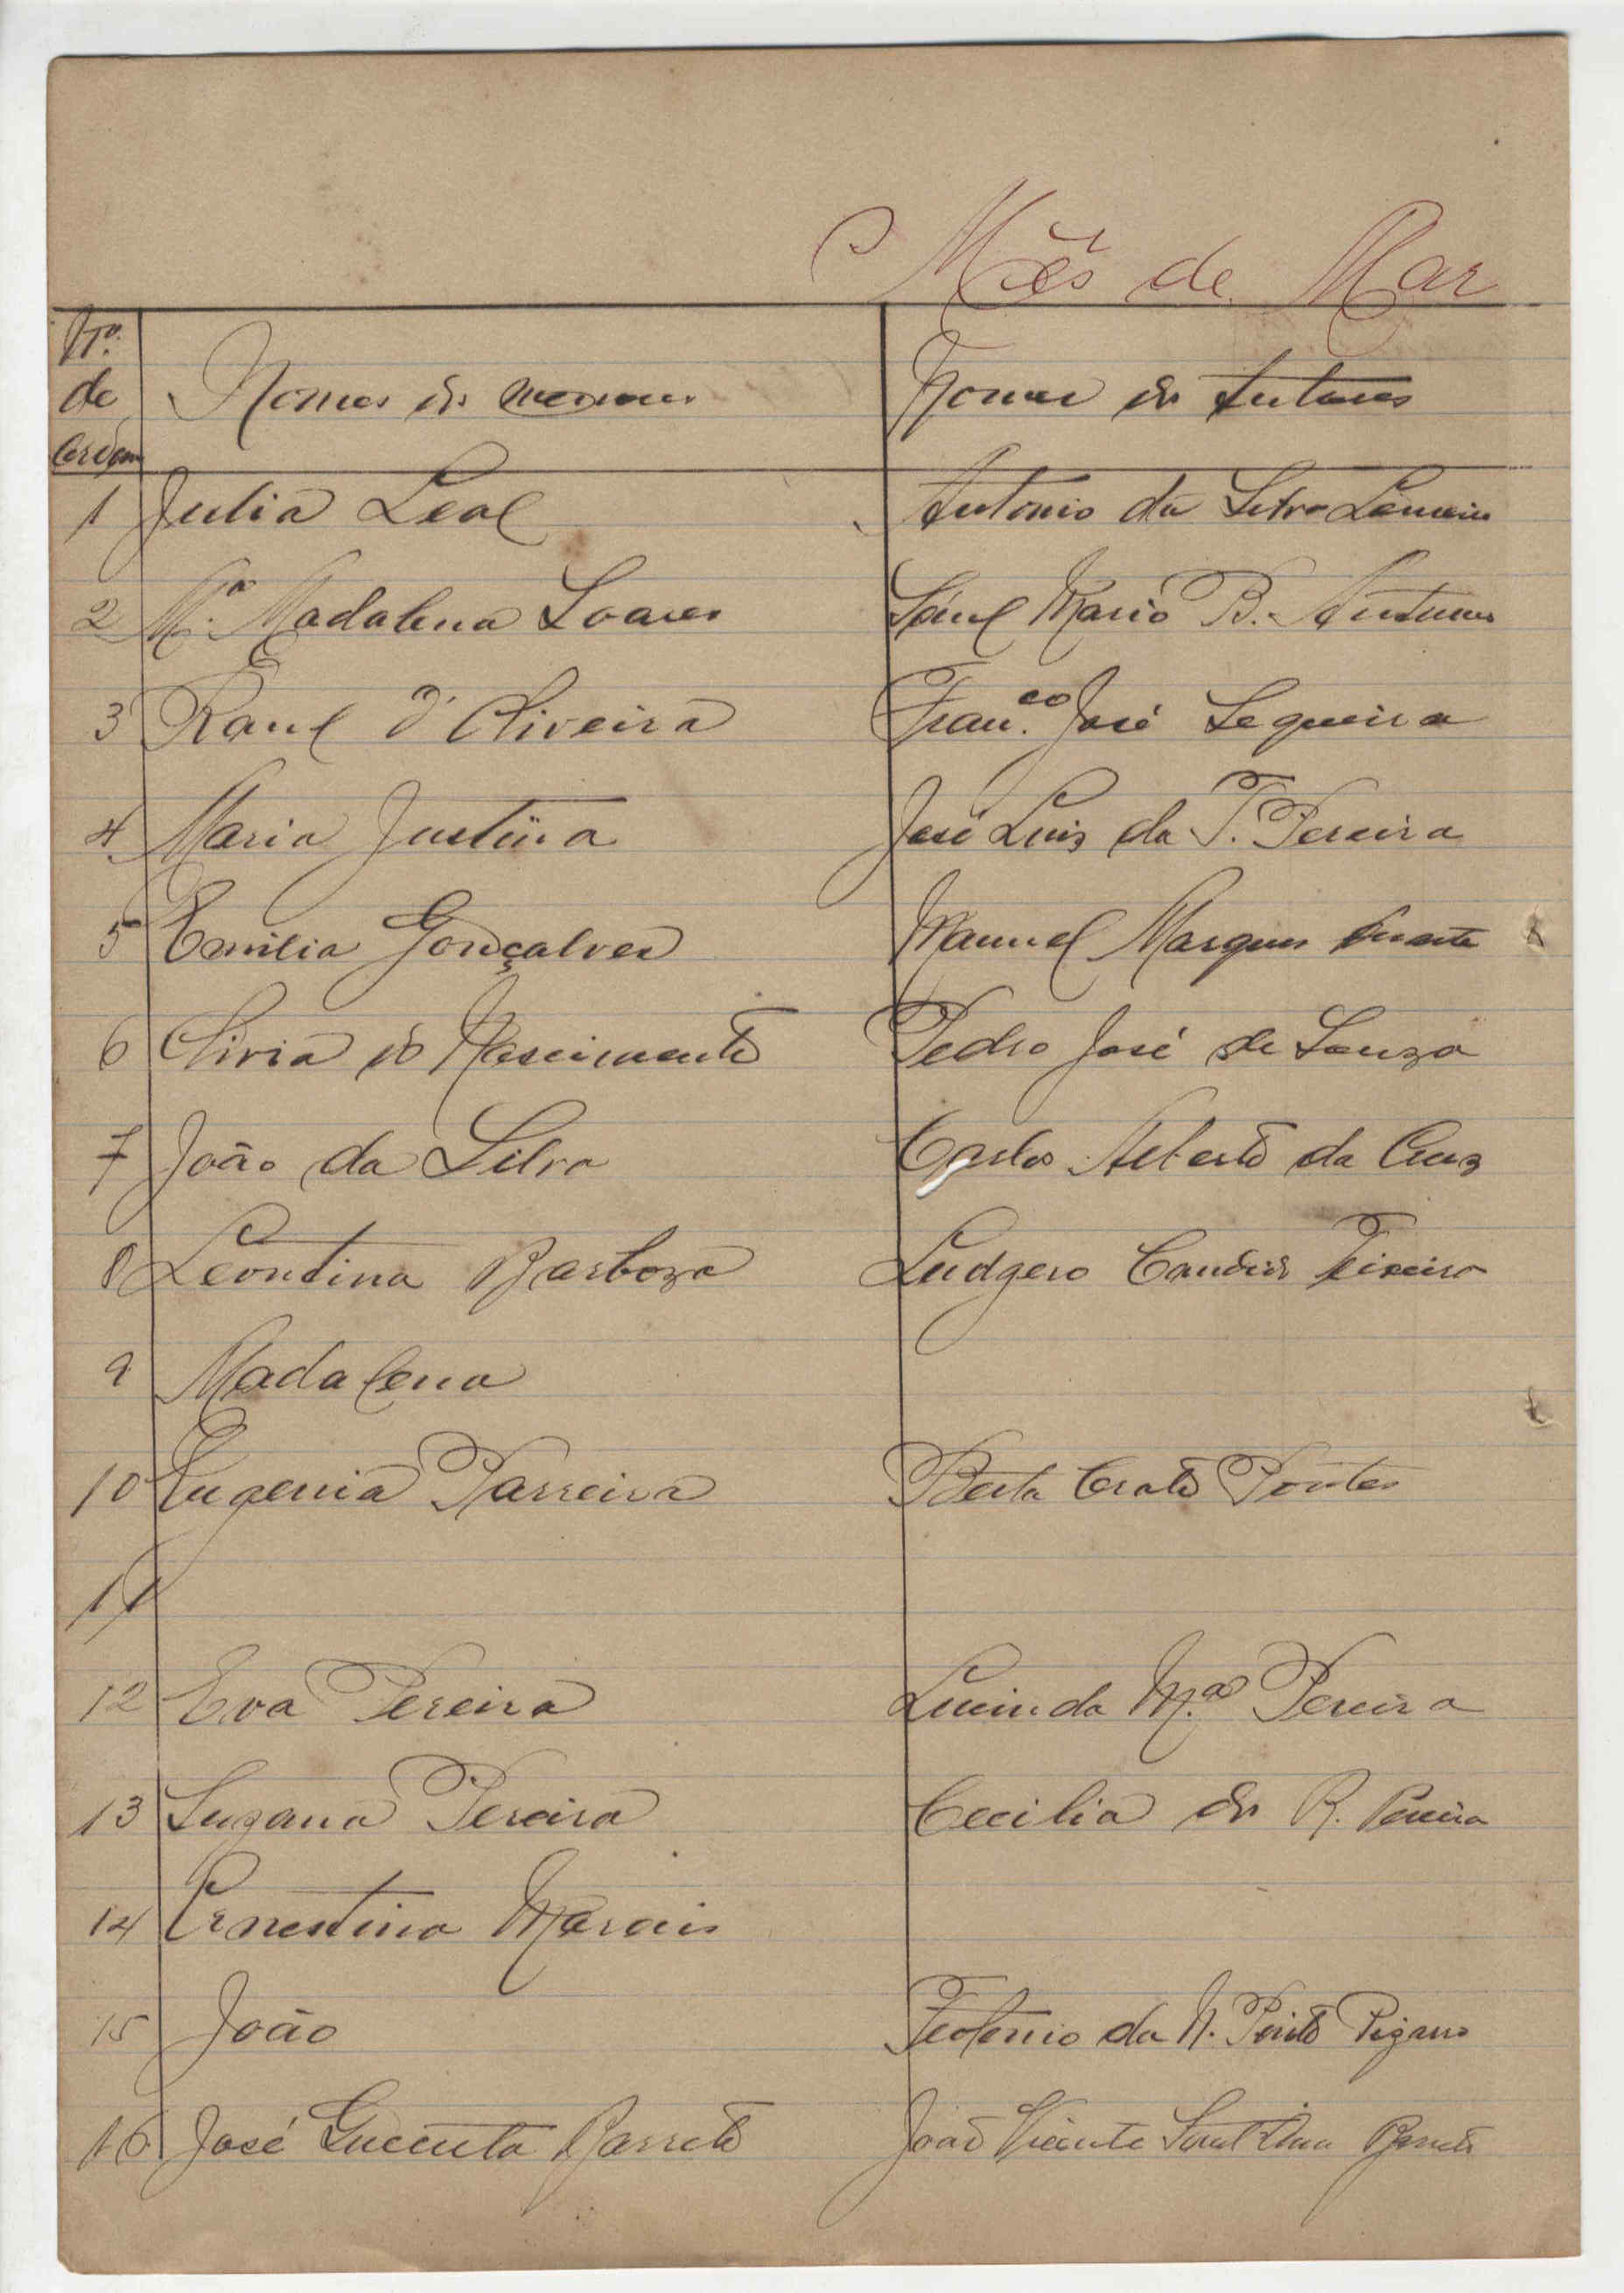 Mês de Mar
Nº.
de
Ordem
Nomes dos menores
Nomes dos tutores
1 Julia Leal Antonio da Silva
2 Mª. Madalena Soares Mario B. Antunes
3 Raul d'Oliveira Fran.co José Sequeira
4 Maria Justina José Luis da T. Pereira
5 Emilia Gonçalves Manuel Marques Duarte
6 Olivia do Nascimento Pedro José de Souza
7 João da Silva Carlos Alberto da Cruz
8 Leontina Barboza Ludgero Candido Teixeira
9 Madalena
10 Eugenia Parreira Berta Crato Pontes
11
12 Eva Pereira Lucinda M.ª Pereira
13 Suzana Pereira Cecilia do R. Pereira
14 Ernestina Morais
15 João Teotonio da N. Pinto Pizarro
16 José Barreto João Vicente Sant'Ana Barreto